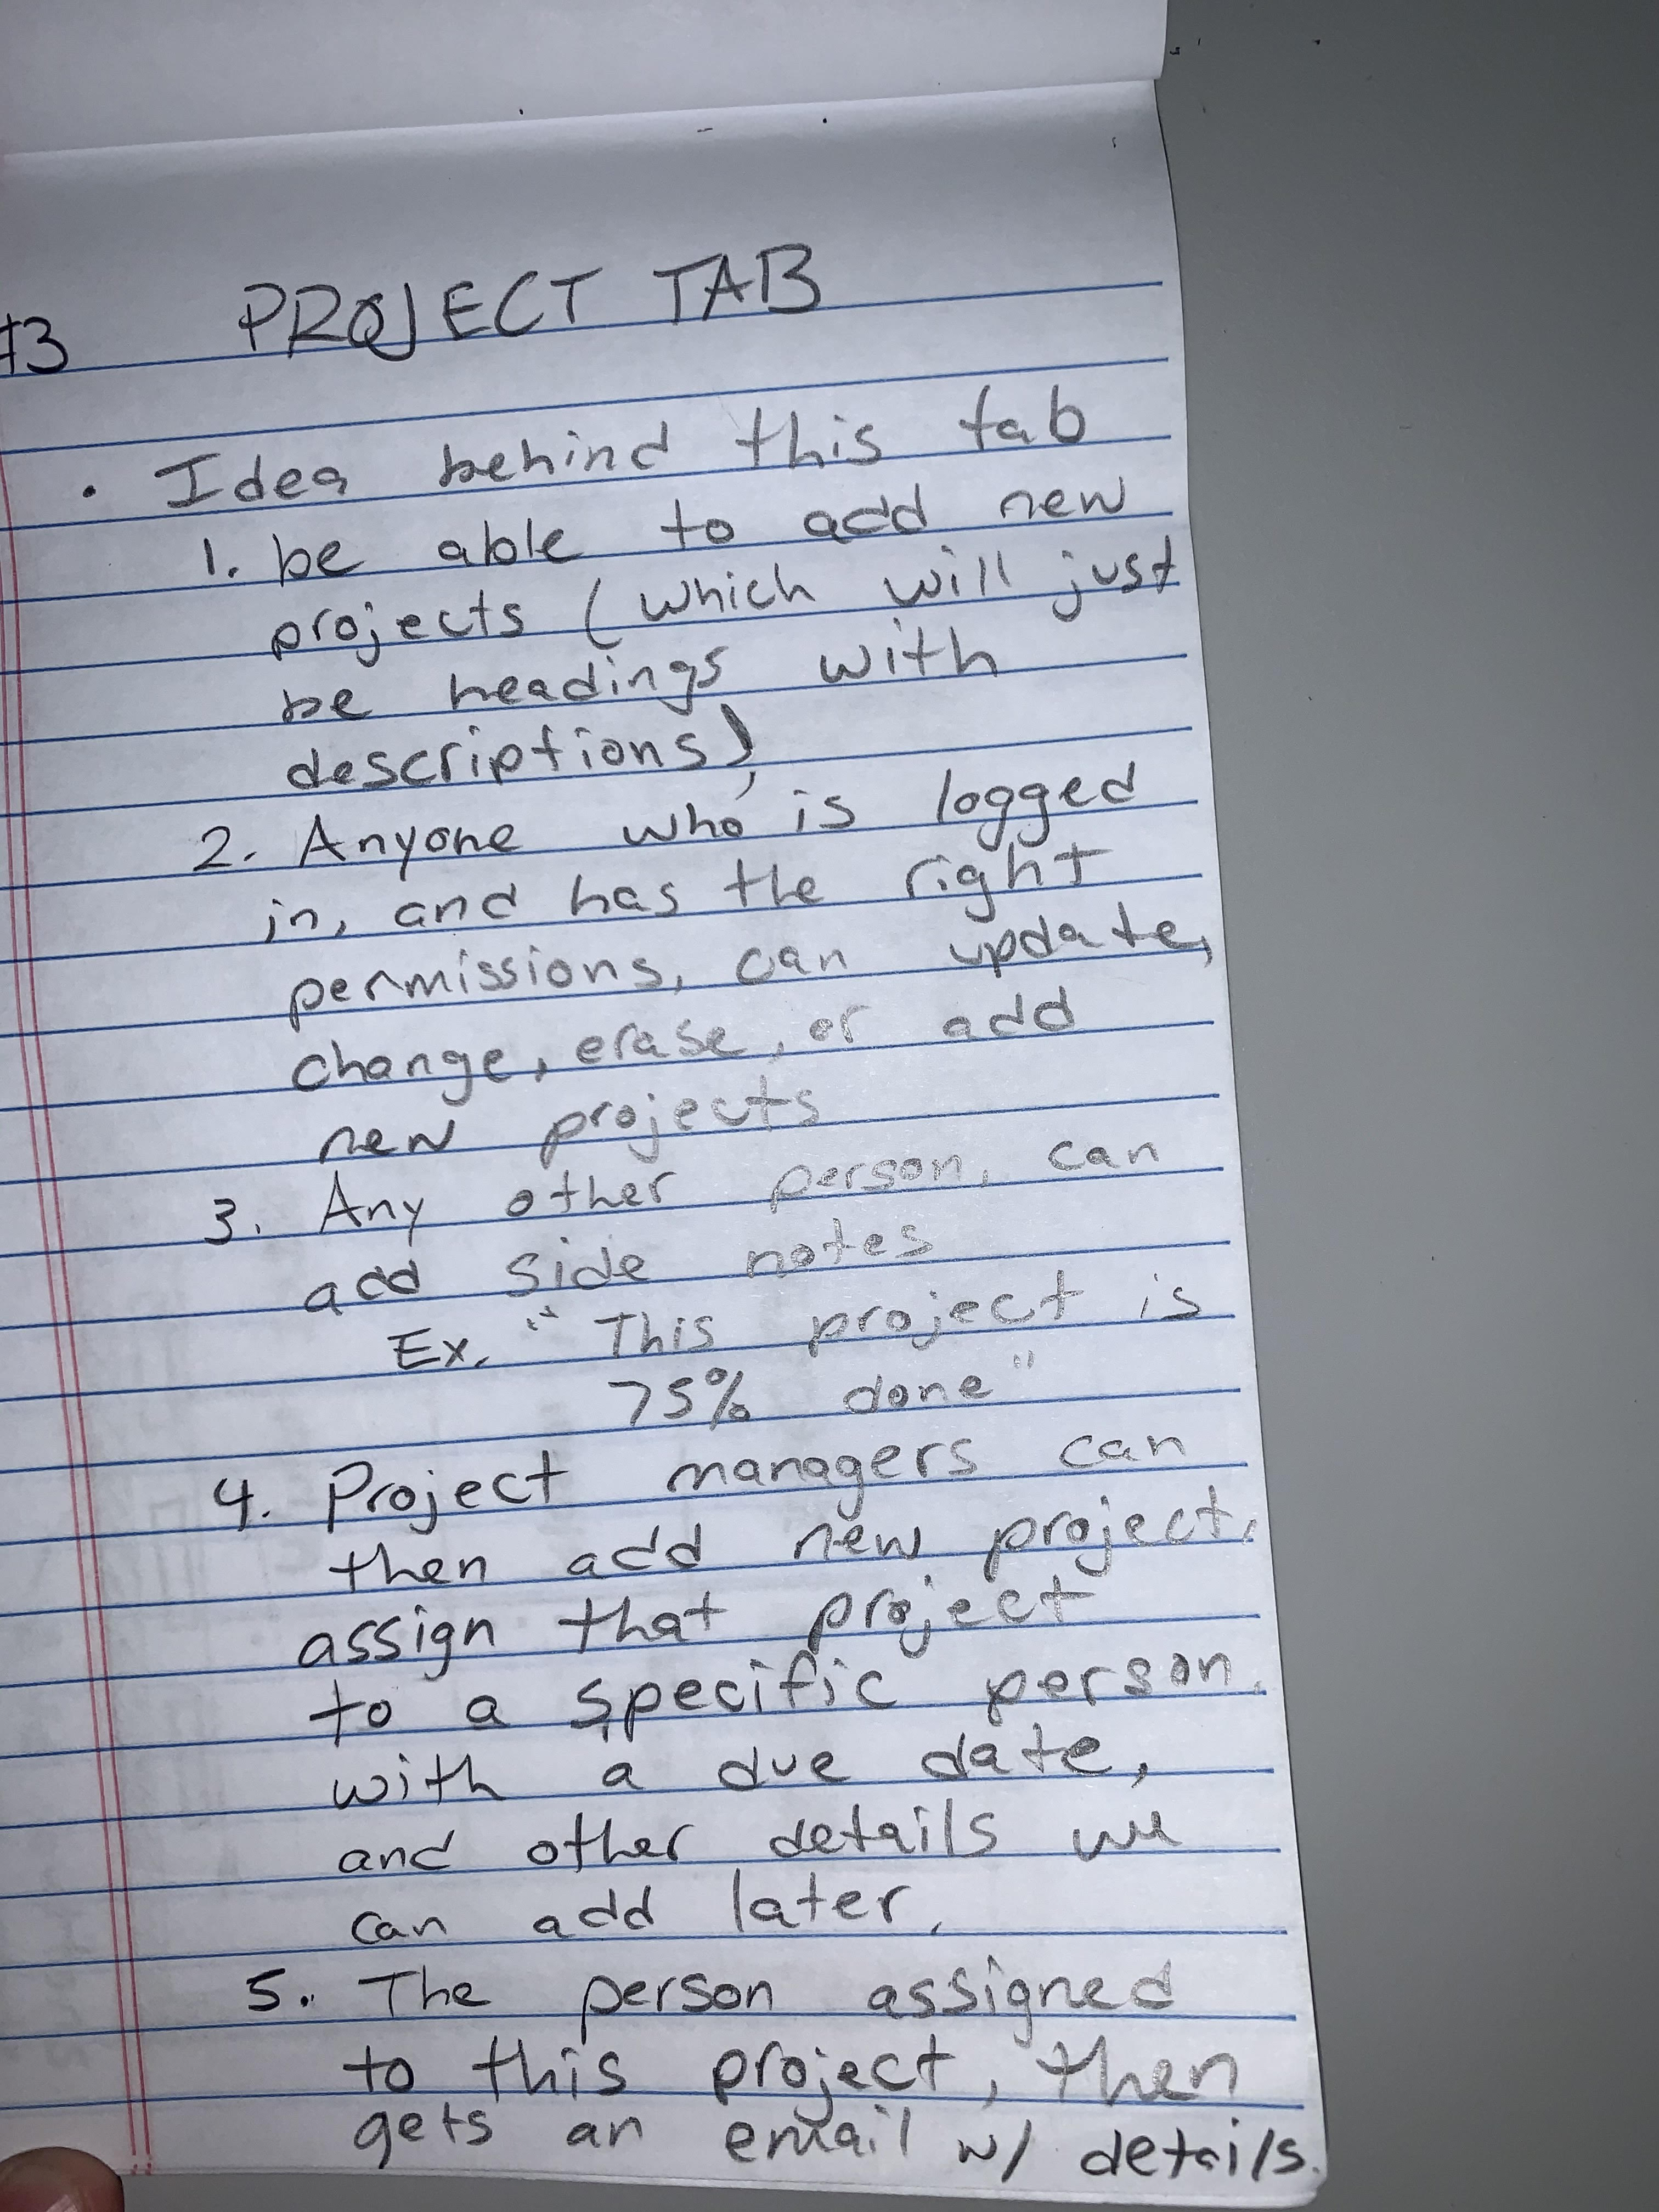 #3 PROJECT TAB
• Idea behind this tab
1. be able to add new
projects (which will just
be headings with
descriptions),
2. Anyone who is logged
in, and has the right
permissions, can update,
change, erase, or add
new projects
3. Any other person, can
add side notes
Ex. "This project is
75% done"
4. Project managers can
then add new project,
assign that project
to a specific person,
with a due date,
and other details we
can add later.
5. The person assigned
to this project, then
gets an email w/ details.